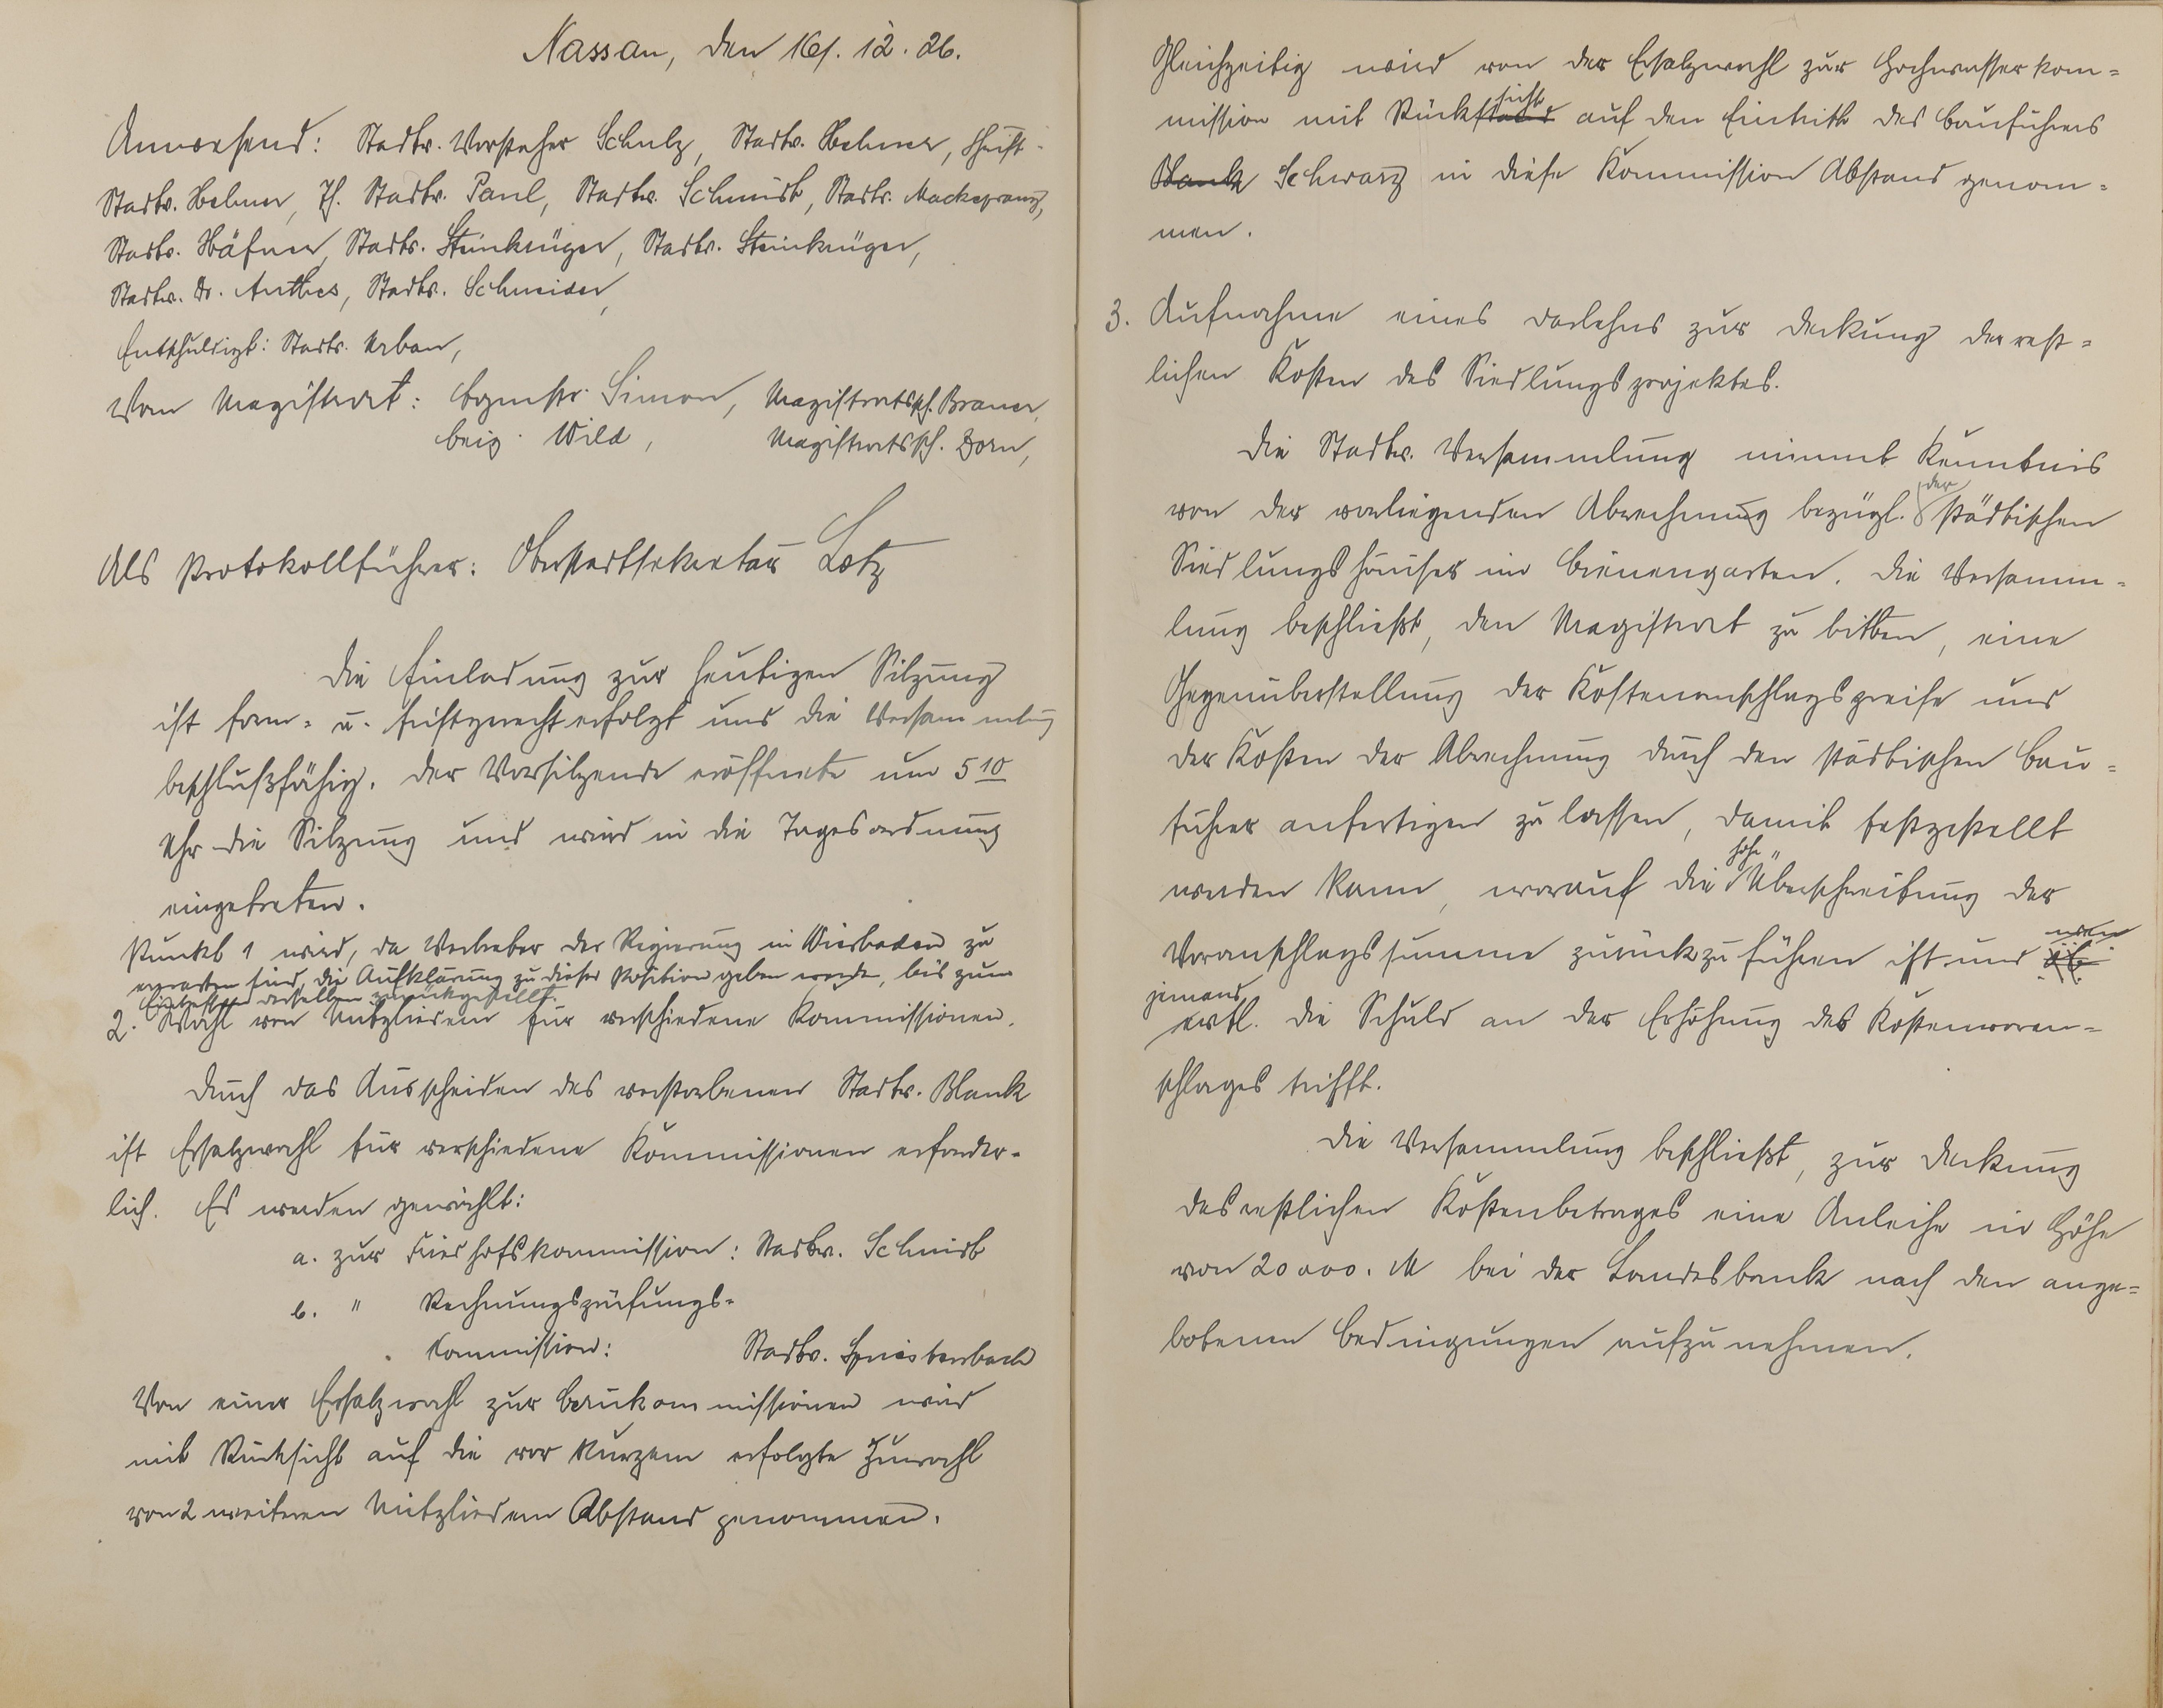 Nassau, den 16. 12. 26.
Anwesend: Stadtv. Vorsteher Schulz, Stadtv. Helmer, Schrift-
Stadtv. Helmer, Th. Stadtv. Paul, Stadtv. Schmidt, Stadtv. Mackeprang,
Stadtv. Häfner, Stadtv. Steinkrüger, Stadtv. Steinkrüger,
Stadtv. Dr. Anthes, Stadtv. Schneider,
Entschuldigt: Stadtv. Urban,
Vom Magistrat: Bgmstr. Simon, Magistratssch. Braun,
Beig. Wild, Magistratssch. Dorn,
Als Protokollführer: Oberstadtsekretär Lotz
Die Einladung zur heutigen Sitzung
ist form- u. fristgerecht erfolgt und die Versammlung
beschlußfähig. Der Vorsitzende eröffnete um 5 10
Uhr die Sitzung und wird in die Tagesordnung
eingetreten.
Punkt 1 wird, da Vertreter der Regierung in Wiesbaden zu
erwarten sind, die Aufklärung zu dieser Position geben werde, bis zum
Eintreffen derselben zurückgestellt.
2. Wahl von Mitgliedern für verschiedene Kommissionen.
Durch das Ausscheiden des verstorbenen Stadtv. Blank
ist Ersatzwahl für verschiedene Kommissionen erforder-
lich. Es werden gewählt:
a. zur Friedhofskommission: Stadtv. Schmidt
b. " Rechnungsprüfungs-
Kommission: Stadtv. Spriestersbach
Von einer Ersatzwahl zur Baukommissionen wird
mit Rücksicht auf die vor Kurzem erfolgte Zuwahl
von 2 weiteren Mitgliedern Abstand genommen.
Gleichzeitig wird von der Ersatzwahl zur Hochwasserkom-
mission mit Rücksicht auf den Eintritt des Bauführers
Blank Schwarz in diese Kommission Abstand genom-
men.
3. Aufnahme eines Darlehns zur Deckung der rest-
lichen Kosten des Siedlungsprojektes.
Die Stadtv. Versammlung nimmt Kenntnis
von der vorliegenden Abrechnung bezügl. der städtischen
Siedlungshäuser im Bienengarten. Die Versamm-
lung beschließt, den Magistrat zu bitten, eine
Gegenüberstellung der Kostenanschlagspreise und
der Kosten der Abrechnung durch den städtischen Bau-
führer anfertigen zu lassen, damit festgestellt
werden kann, worauf die hohe Überschreitung der
Voranschlagssumme zurückzuführen ist und wen
jemand evtl. die Schuld an der Erhöhung des Kostenvoran-
schlages trifft.
Die Versammlung beschließt, zur Deckung
des restlichen Kostenbetrages eine Anleihe in Höhe
von 20 000. M bei der Landesbank nach den ange-
botenen Bedingungen aufzunehmen.